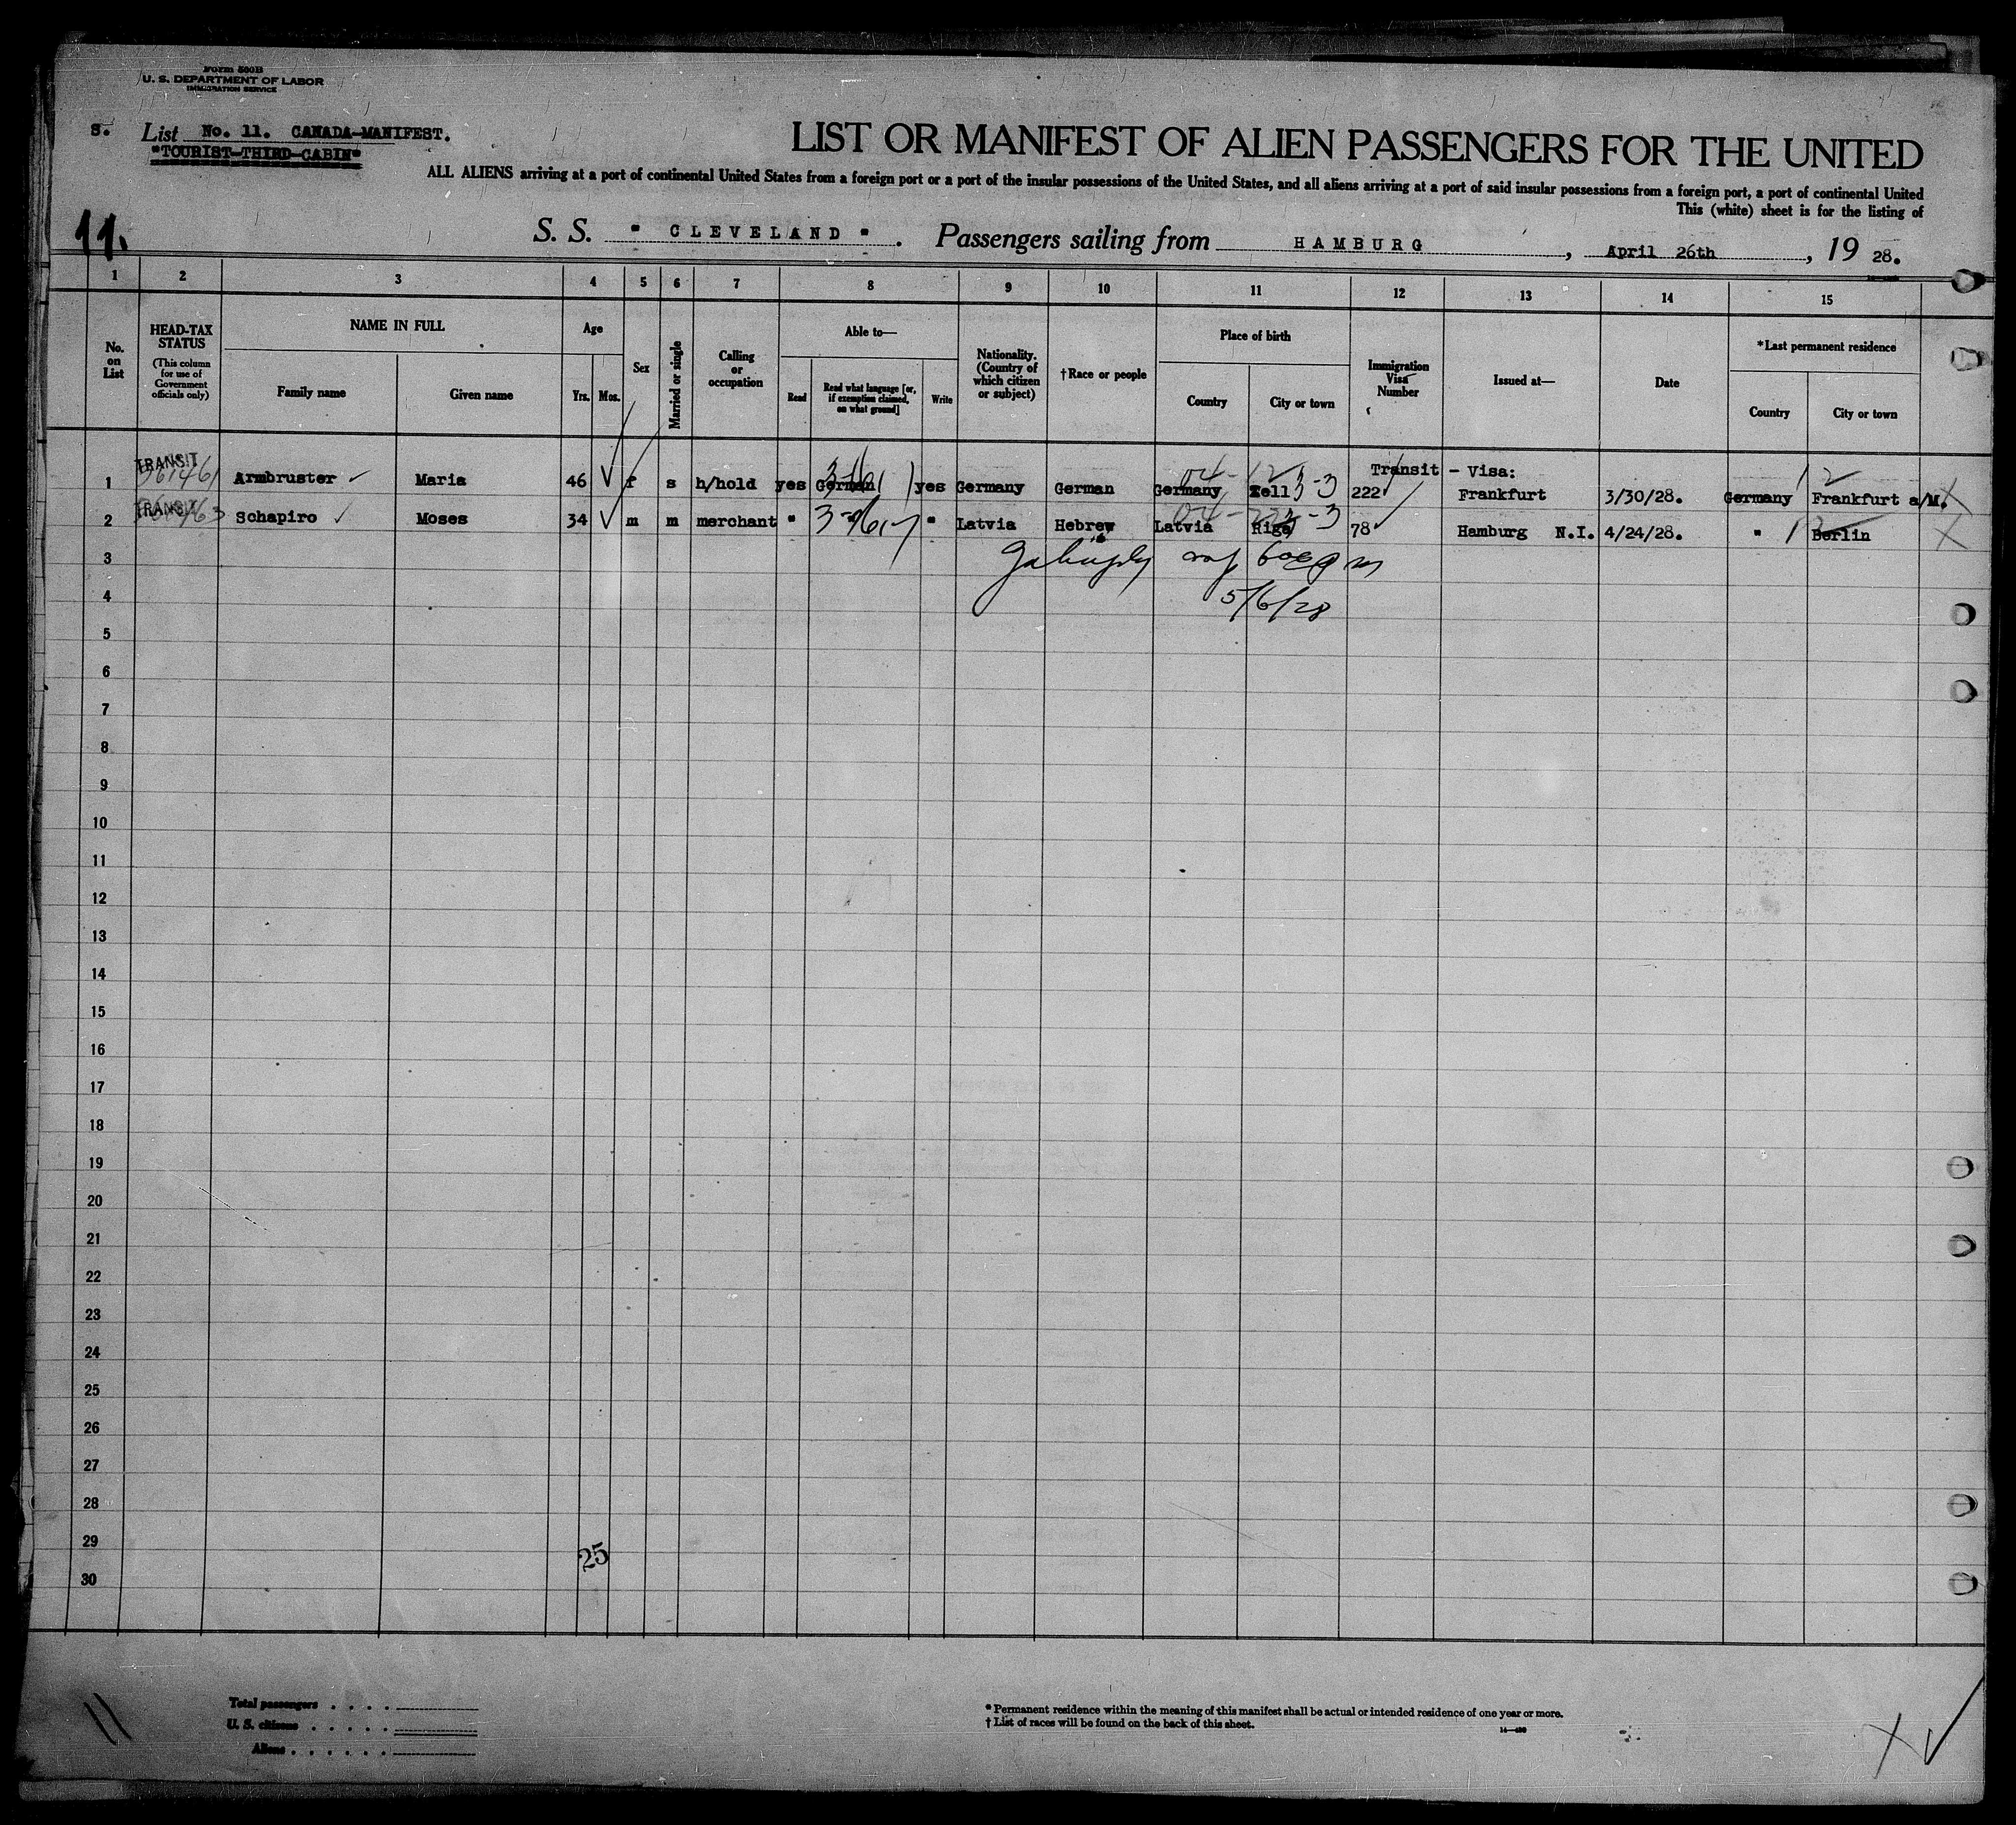 Form 500B
U. S. DEPARTMENT OF LABOR
IMMIGRATION SERVICE
S. List No. 11. CANADA-MANIFEST.
"TOURIST-THIRD-CABIN"
LIST OR MANIFEST OF ALIEN PASSENGERS FOR THE UNITED
ALL ALIENS arriving at a port of continental United States from a foreign port or a port of the insular possessions of the United States, and all aliens arriving at a port of said insular possessions from a foreign port, a port of continental United
This (white) sheet is for the listing of
11.
S. S. " CLEVELAND ". Passengers sailing from HAMBURG, April 26th, 19 28.
1 2 3 4 5 6 7 8 9 10 11 12 13 14 15
No. on List
HEAD-TAX STATUS
(This column for use of Government officials only)
NAME IN FULL
Family name Given name
Age
Yrs. Mos.
Sex
Married or single
Calling or occupation
Able to—
Read
Read what language [or, if exemption claimed, on what ground]
Write
Nationality. (Country of which citizen or subject)
†Race or people
Place of birth
Country City or town
Immigration Visa Number
Issued at—
Date
*Last permanent residence
Country City or town
Transit - Visa:
1 TRANSIT 361461 Armbruster Maria 46 f s h/hold yes German yes Germany German Germany Zell 222 Frankfurt 3/30/28. Germany Frankfurt a/M.
2 TRANSIT Schapiro Moses 34 m m merchant " " " Latvia Hebrew Latvia Riga 78 Hamburg N.I. 4/24/28. " Berlin
3
5/6/28
4
5
6
7
8
9
10
11
12
13
14
15
16
17
18
19
20
21
22
23
24
25
26
27
28
29
25
30
Total passengers . . . .
U. S. citizens . . . . .
Aliens . . . . . .
* Permanent residence within the meaning of this manifest shall be actual or intended residence of one year or more.
† List of races will be found on the back of this sheet.